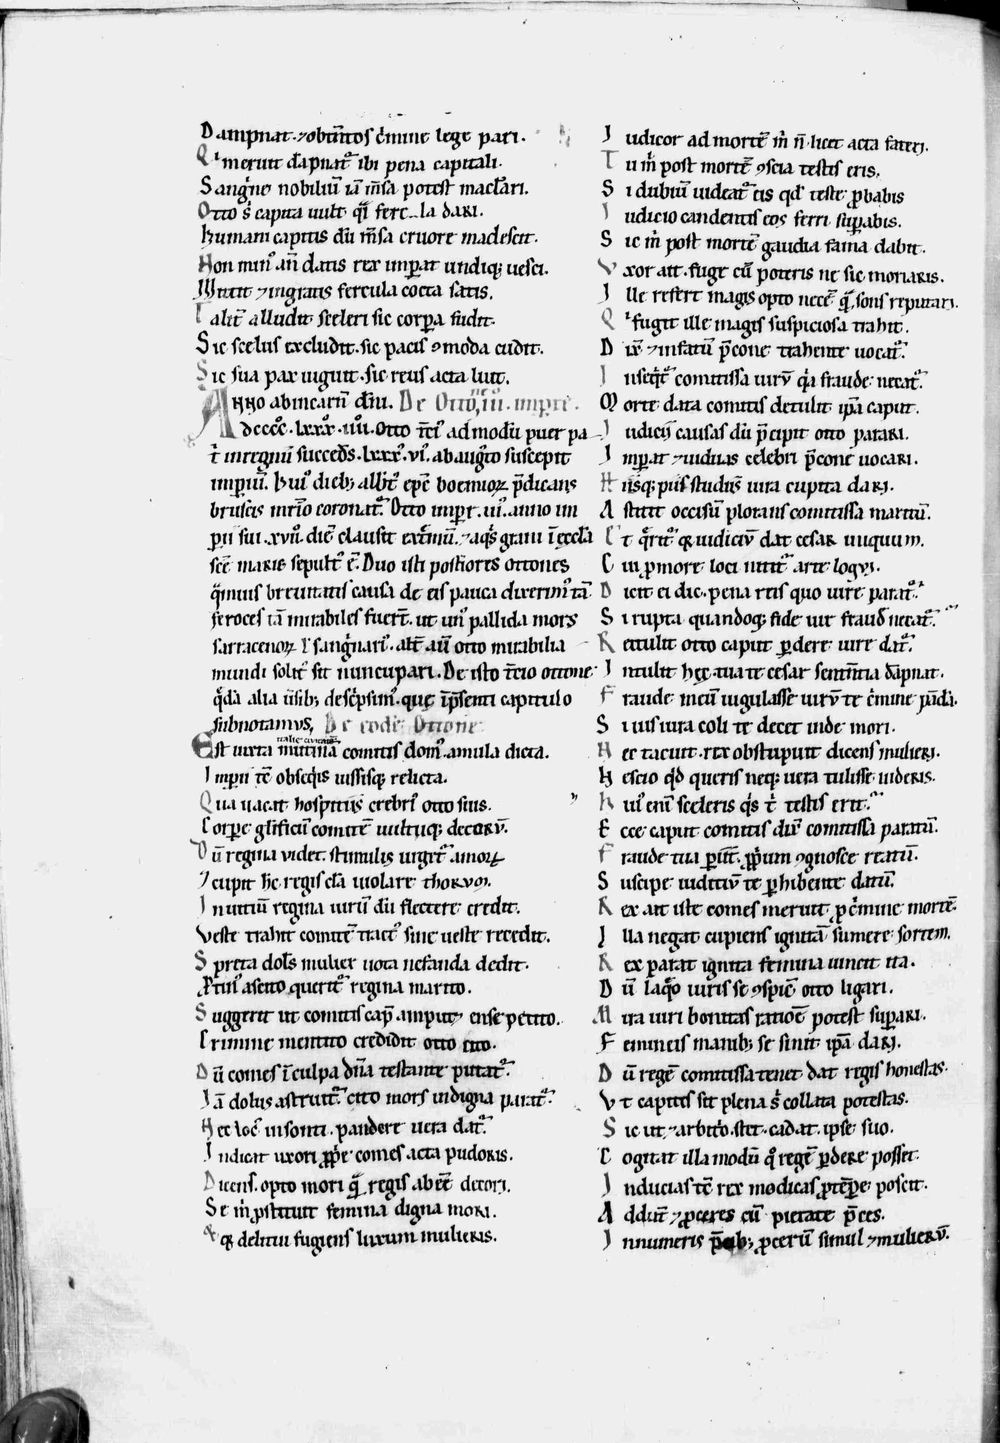 Dampnat. ⁊ obtūtos c̾mine lege pari.
Qͥ meruit dāpnat᷒ ibi pena capitali.
Sangͥne nobiliū iā m̄sa potest mac̄lari.
Otto s̄ capita uult qͥ ferc la dari.
Humani capitis dū m̄sa cruore madescit.
Non min᷒ an̄ datis rex imꝑat undiqꝫ uesci.
Mittit ⁊ ingratis fercula cocta satis.
Talit̄ alludit sceleri sic corpora fudit.
Sic scelus excludit. sic pacis ꝯmoda cudit.
Sic sua pax uiguit. sic reus acta luit.
Anno ab incarn̄ dn̄i. De Ottoīe .iii. impre.
dcccc. lxxx. iiii. Otto t̄ci᷒ ad modū puer pa
t̄ in regnū succed̄s. lxxx. vi. ab augͭo suscepit
imꝑiū. Hui᷒ diebꝫ albt᷒ ep̄c boemioꝝ p̄dicans
bruscis mr̄io coronat᷒. Otto imꝑr .iii. anno im
ꝑii sui .xvii. diē clausit ext̄mū. ⁊ aqͥs grani ī eccl̄a
sc̄e marie sepult᷒ ē. Duo isti post̄iores ottones
qͣmuis breuitatis causa de eis pauca dixerim᷒ tā
feroces iā mirabiles fuer̄t. ut un᷒ pallida mors
sarracenoꝝ ł sangͥnari᷒. alt̄ aū otto mirabilia
mundi solit᷒ sit nuncupari. De isto t̄cio ottone
qͥda alia uīsibꝫ desc̄psim᷒. que ī p̄senti capitulo
subnotamus. De eodē Ottone
italie ciuitatē
Est iuxta mutinā comitis dom᷒ amula dicta.
Imꝑii tē obseqͥis iussisqꝫ relicta.
Qua uacat hospitiis crebri᷒ otto suis.
Corpe glificū comitē uultuqꝫ decorū.
Dū regina videt. stimulis urget᷒ amoꝝ
⁊ cupit hc̄ regis clā uiolare thorum.
Inuitiū regina uirū dū flectere credit.
Veste trahit comitē tract᷒ sine ueste recedit.
Spreta dol̄s mulier uota nefanda dedit.
Protin᷒ a scito querit᷒ regina marito.
Suggerit ut comitis cap᷒ amputꝫ ense petito.
Crimine mentito credidit otto cito.
Dū comes ī culpa dn̄a testante putat᷒.
Iā dolus astruit᷒ cito mors indigna parat᷒.
Hec loc᷒ insonti. pandere uera dat᷒.
Indicat uxori ꝓpe comes acta pudoris.
Dicens. opto mori qͣ regis abēē decori.
Se m̄ ꝓstituit femina digna mori.
Atqꝫ delitui fugiens luxum mulieris.
Iudicor ad mortē m̄ n̄ licet acta fateri.
Tu m̄ post mortē ꝯscia testis eris.
Si dubiū uideat᷒ eis qd̄ teste ꝓbabis
Iudicio candentis eos ferri suꝑabis.
Sic m̄ post mortē gaudia fama dabit.
Vxor ait. fuge cū poteris ne sic moriaris.
Ille refert magis opto necē qͣ sons reputari.
Qͥ fugit ille magis suspiciosa trahit.
Dix̄ ⁊ infatū p̄cone trahente uocat᷒.
Inseqͥt᷒ comitissa uirū qͥa fraude necat᷒.
Morte data comitis detulit ipā caput.
Iudicii causas dū p̄cipit otto parari.
Imꝑat ⁊ uiduas celebri p̄cone uocari.
Hiisqꝫ piis studiis iura cupita dari.
Astitit occisū plorans comitissa maritū.
Et qͥrit᷒ qꝫ iudiciū dat cesar iniquum.
Cui ꝓ more loci nitit᷒ arte loqui.
Dicit ei dic. pena reis quo iure parat᷒.
Si rupta quandoqꝫ fide uir fraud necat᷒.
Retulit otto caput ꝑdere iure dat᷒.
Intulit hec tua te cesar sentētia dāpnat.
Fraude meū iugulasse uirū te c̾mine pādā.
Si uis iura coli te decet inde mori.
Hec tacuit. rex obstupuit dicens mulieri.
Nescio qd̄ queris neqꝫ uera tulisse uideris.
Hui᷒ eni᷒ sceleris qͥs t̄ testis erit.
Ecce caput comitis dix̄ comitissa paratū.
Fraude tua ꝑiit ꝓprium ꝯgnosce reatū.
Suscipe iuditiū te ꝑhibente datū.
Rex ait iste comes meruit ꝓ c̾mine mortē.
Illa negat cupiens ignitā sumere sortem.
Rex parat ignita femina uincit ita.
Dū laqͦ iuris se ꝯspic̄ otto ligari.
Mira uiri bonitas ratiōe potest suꝑari.
Femineis manibꝫ se sinit ipā dari.
Dū regē comitissa tenet. dat regis honestas.
Vt capitis sit plena s̄ collata potestas.
Sic ut ⁊ arbitͦo. stet. cadat. ipse suo.
Cogitat illa modū qͦ regē ꝑdere posset.
Inducias tē rex modicas ꝓ tēpore poscit.
Addūt ⁊ ꝓceres cū pietate p̄ces.
Innumeris p̄cibꝫ ꝓcerū simul ⁊ mulierū.